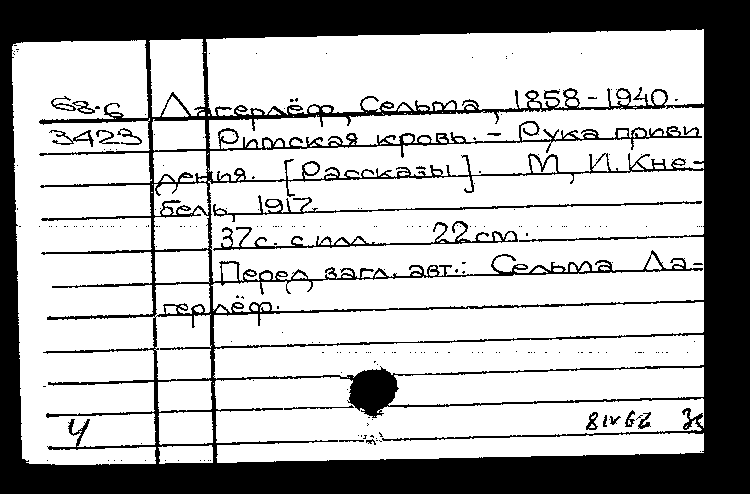 68-6 Лагерлёф, Сельма, 1858-1940.
3423 Римская кровь. - Рука приви
дения. [Рассказы]. М, И. Кне-
бель, 1917.
37 с. с илл. 22 см.
Перед загл. авт.: Сельма Ла=
герлёф.
Ч 8 IV 68